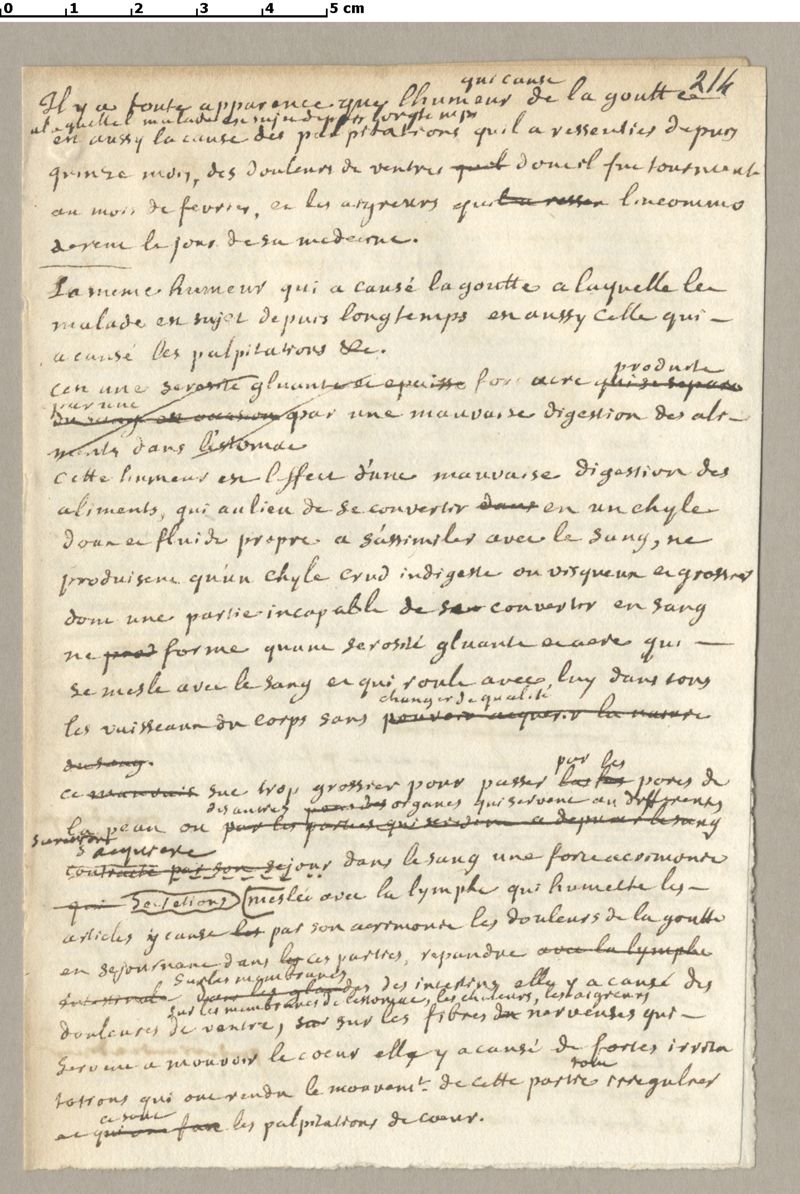 0 1 2 3 4 5 cm
214
qui cause
Il y a toute apparence que l'humeur de la goutte
a laquelle malade est sujet depuis longtemps
est aussy la cause des palpitations qu'il a ressenties depuis
quinze mois, des douleurs de ventres dont il fut tourmenté
au mois de fevrier, et les aigreurs qui l'incommo
derent le jour de sa medecine.
La meme humeur qui a causé la goutte a laquelle le
malade est sujet depuis longtemps est aussy celle qui
a causé les palpitations &c.
produite
cest une serosité gluante et epaisse fort acre qui se separe
par une
du sang par une mauvaise digestion des ali-
ments dans l'estomac
Cette humeur est l'effect d'une mauvaise digestion des
aliments, qui au lieu de se convertir dans en un chyle
doux et fluide propre a s'assimiler avec le sang, ne
produisent qu'un chyle crud indigeste ou visqueux et grossier
dont une partie incapable de se convertir en sang
ne forme quune serosité gluante et acre qui
se mesle avec le sang et qui roule avec luy dans tous
changer de qualité
les vaisseaux du corps sans pouvoir acquerir la nature
du sang.
par les
ce mauvais suc trop grossier pour passer pores de
des autres organes qui servent aux differentes
la peau ou par les parties qui servent a depurer le sang
secretions
s'acquiere
contracte par son sejour dans le sang une forte acrimonie
qui secretions meslée avec la lymphe qui humecte les
articles y cause par son acrimonie les douleurs de la goutte
en sejournant dans ces parties, repandue avec la lymphe
sur les membranes
intestinale dans les glandes des intestins elle y a causé des
sur les membranes de l'estomac, les chaleurs, les aigreurs
douleures de ventre, sur les fibres nerveuses qui
servent a mouvoir le coeur elle y a causé de fortes irrita
tations qui ont rendu le mouvemt. de cette partie irregulier
ce sont
et qui ont fait les palpitations de coeur.